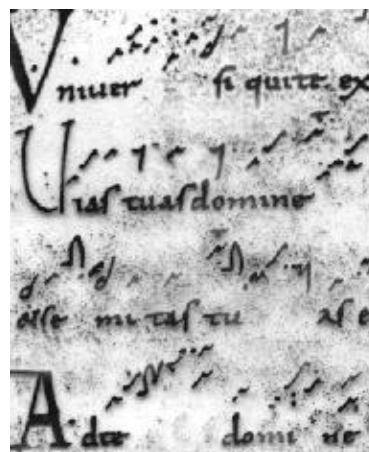 Uniuer si quite ex
Uias tuas domine
 mi tas tu as e
Adte domi ne